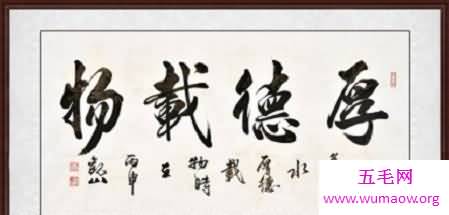 厚德載物
水
厚德
載
物時
在
丙申
五毛网
www.wumaow.org